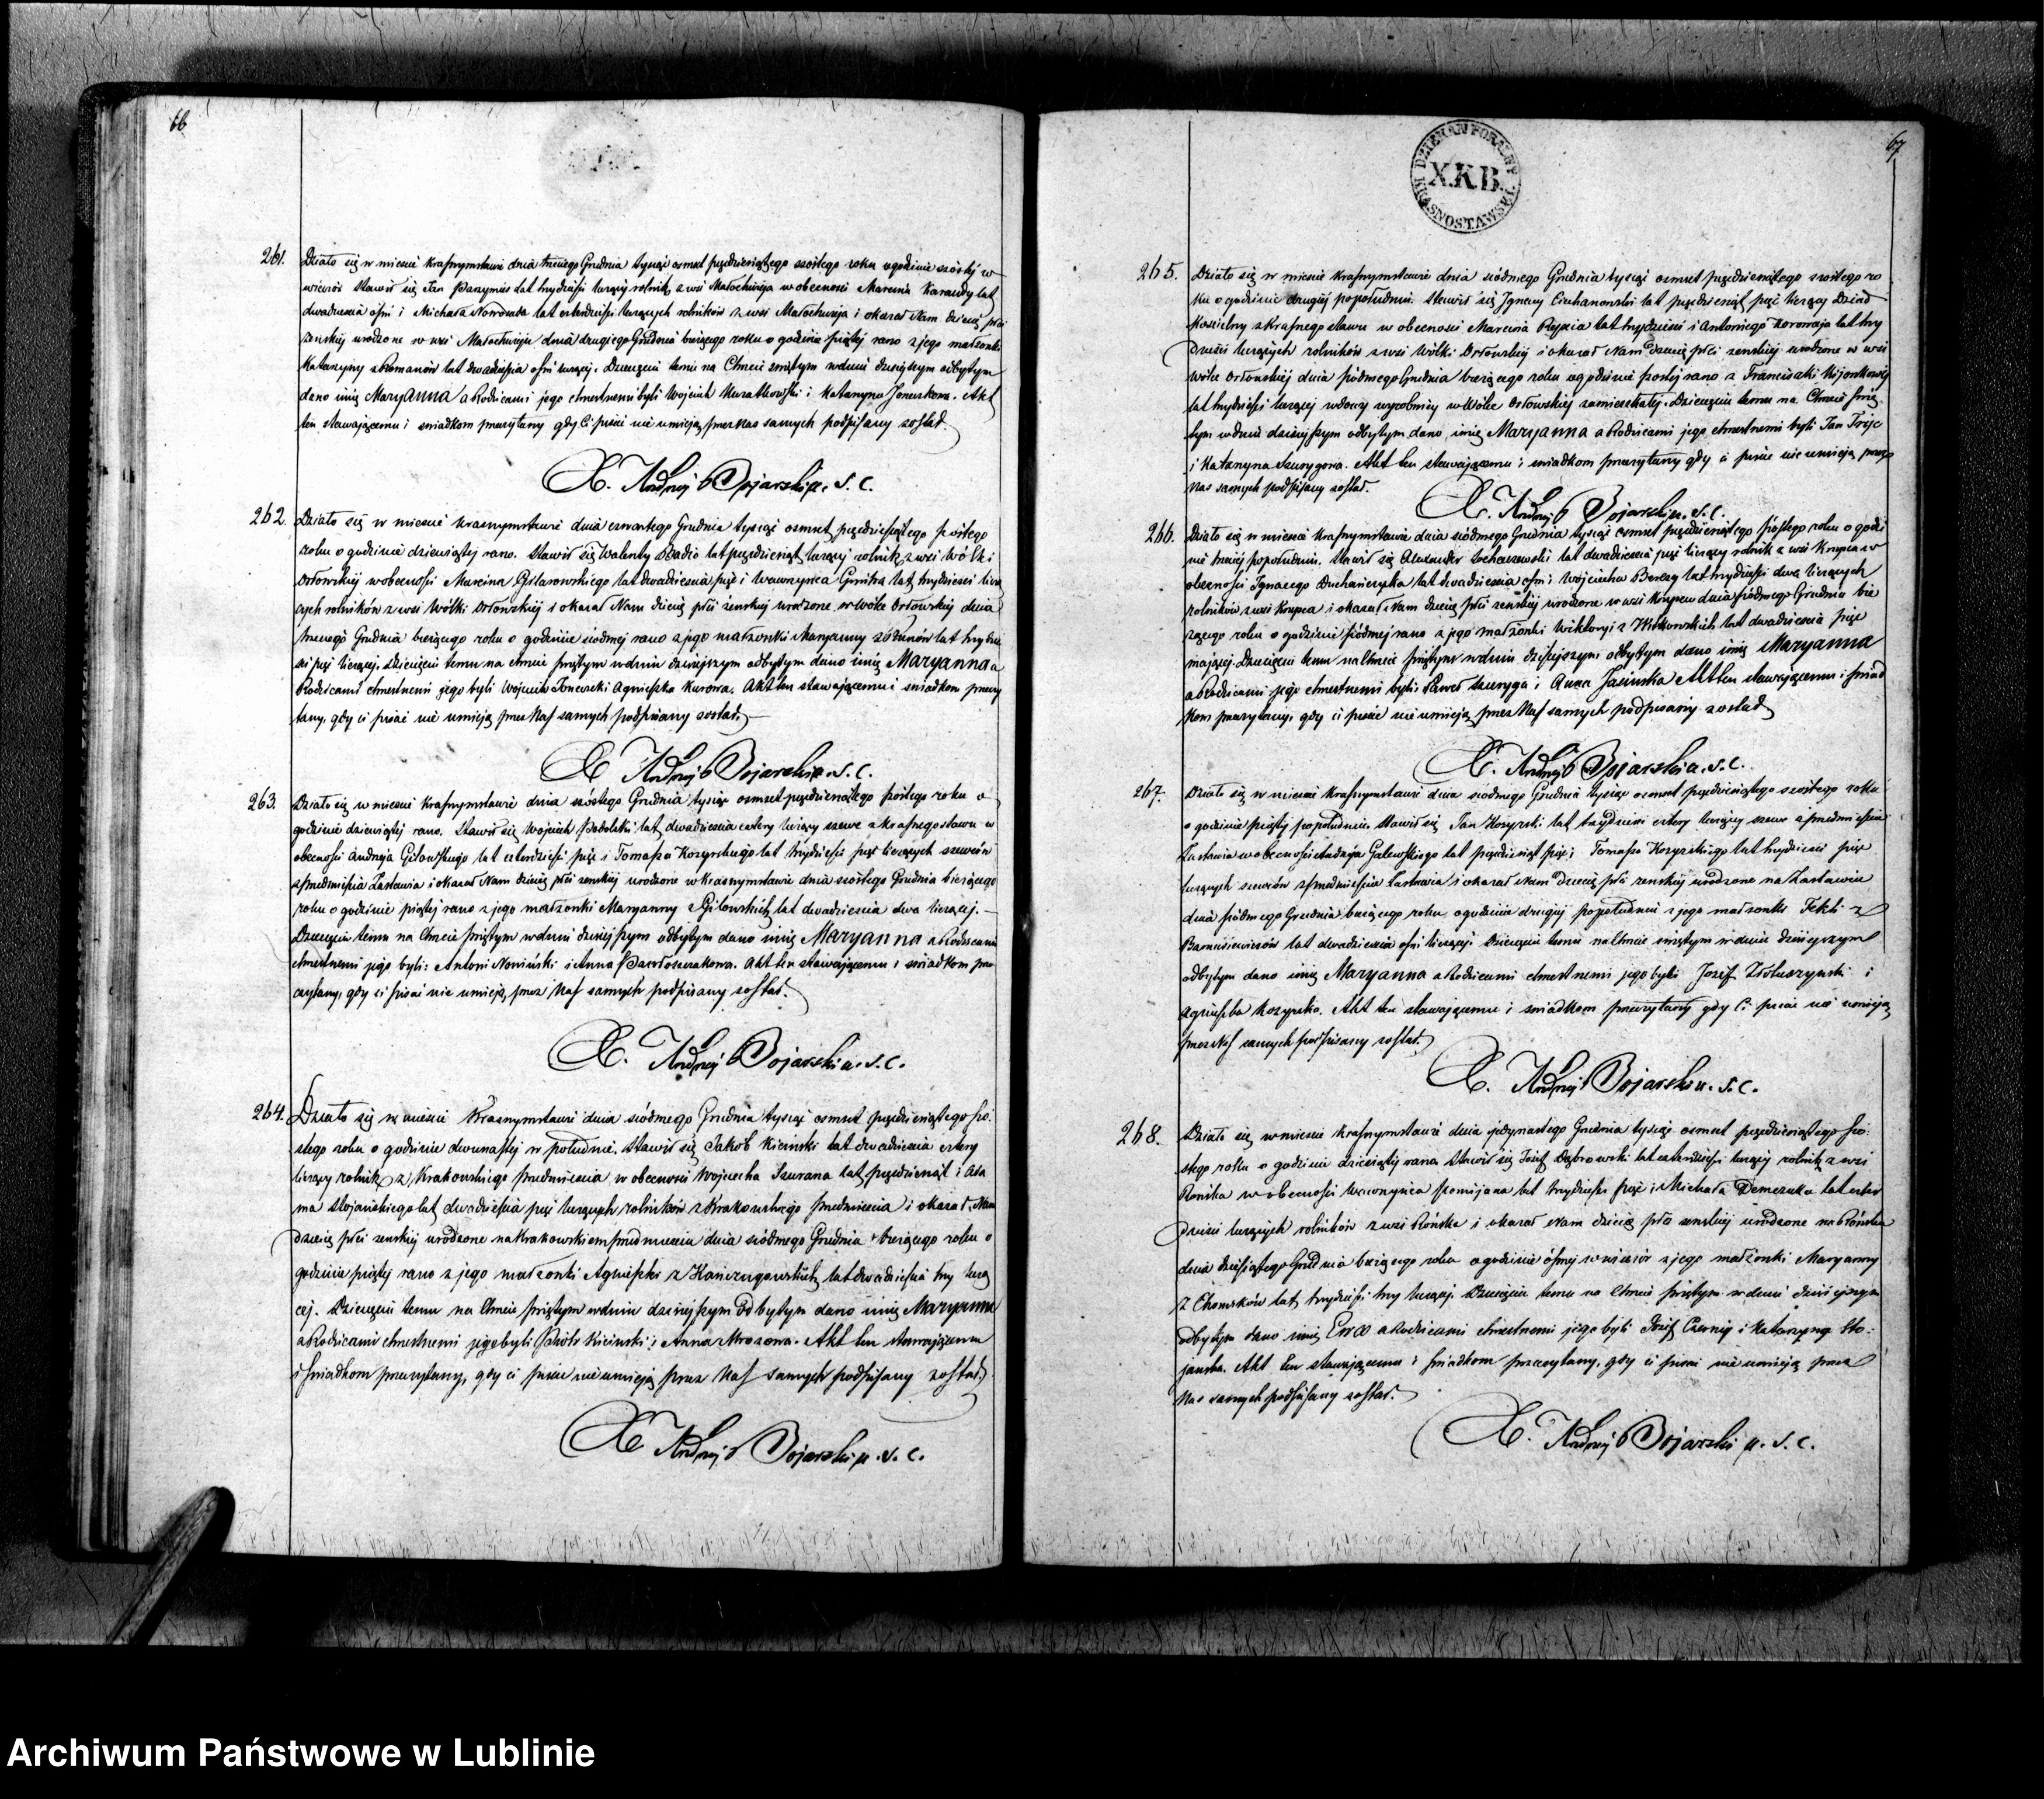 66
261. Działo się w mieście Krasnymstawie dnia trzeciego Grudnia tysiąc osmset pięćdziesiątego szóstego roku o godzinie szóstej w
wieczór stawił się Jan lat trzydzieści liczący rolnik z wsi Małochwieja w obecności Marcina lat
dwadzieścia ośm i Michała lat czterdzieści liczących rolników z wsi Małochwieja i okazał Nam dziecię płci
żeńskiej urodzone w wsi Małochwieju dnia drugiego Grudnia bieżącego roku o godzinie piątej rano z jego małżonki
Katarzyny z Romanów lat dwadzieścia ośm liczącej. Dziecięciu temu na Chrzcie świętym w dniu dzisiejszym odbytym
dano imię Maryanna a Rodzicami jego chrzestnemi byli Wojciech i Katarzyna. Akt
ten stawającemu i świadkom przeczytany gdy Ci pisać nie umieją przez Nas samych podpisany został
X. Andrzej Bojarski u. S. C.
262. Działo się w mieście Krasnymstawie dnia czwartego Grudnia tysiąc osmset pięćdziesiątego szóstego
roku o godzinie dziewiątej rano. Stawił się Walenty lat pięćdziesiąt liczący rolnik z wsi Wólki
Orłowskiej w obecności Marcina lat dwadzieścia pięć i Wawrzyńca lat trzydzieści licz
ących rolników z wsi Wólki Orłowskiej i okazał Nam dziecię płci żeńskiej urodzone w Wólce Orłowskiej dnia
trzeciego Grudnia bieżącego roku o godzinie siódmej rano z jego małżonki Maryanny lat trzydzie
ści pięć liczącej. Dziecięciu temu na chrzcie świętym w dniu dzisiejszym odbytym dano imię Maryanna a
Rodzicami chrzestnemi jego byli Wojciech Agnieszka Kurowa. Akt ten stawającemu i świadkom przeczy
tany, gdy Ci pisać nie umieją przez Nas samych podpisany został
X. Andrzej Bojarski u. S. C.
263. Działo się w mieście Krasnymstawie dnia szóstego Grudnia tysiąc osmset pięćdziesiątego szóstego roku o
godzinie dziewiątej rano. Stawił się Wojciech lat dwadzieścia cztery liczący szewc z Krasnegostawu w
obecności Andrzeja lat czterdzieści pięć i Tomasza Kozyrskiego lat trzydzieści pięć liczących szewców
z przedmieścia Zastawia i okazał Nam dziecię płci żeńskiej urodzone w Krasnymstawie dnia szóstego Grudnia bieżącego
roku o godzinie piątej rano z jego małżonki Maryanny z lat dwadzieścia dwa liczącej.
Dziecięciu temu na Chrzcie świętym w dniu dzisiejszym odbytym dano imię Maryanna a Rodzicami
chrzestnemi jego byli: Antoni Nowiński i Anna. Akt ten stawającemu i świadkom prze
czytany, gdy ci pisać nie umieją, przez Nas samych podpisany został.
X. Andrzej Bojarski u. S. C.
264. Działo się w mieście Krasnymstawie dnia siódmego Grudnia tysiąc osmset pięćdziesiątego szó
stego roku o godzinie dwunastej w południe, stawił się Jakób Kiciński lat dwadzieścia cztery
liczący rolnik z Krakowskiego przedmieścia w obecności Wojciecha lat pięćdziesiąt i Ada
ma Stojańskiego lat dwadzieścia pięć liczących rolników z Krakowskiego przedmieścia i okazał Nam
dziecię płci żeńskiej urodzone na Krakowskiem przedmieściu dnia siódmego Grudnia bieżącego roku o
godzinie piątej rano z jego małżonki Agnieszki z lat dwadzieścia trzy liczą
cej. Dziecięciu temu na Chrzcie świętym w dniu dzisiejszym odbytym dano imię Maryanna
a Rodzicami chrzestnemi jego byli Piotr Kiciński i Anna Mrozowa. Akt ten stawającemu
i świadkom przeczytany, gdy ci pisać nie umieją przez Nas samych podpisany został
X. Andrzej Bojarski u. S. C.
DZIEKAN FORALNY
X.K.B.
KRASNOSTAWSKI
67
265. Działo się w mieście Krasnymstawie dnia siódmego Grudnia tysiąc osmset pięćdziesiątego szóstego ro
ku o godzinie drugiej popołudniu. Stawił się Ignacy Ciuhanowski lat pięćdziesiąt pięć liczący Dziad
Kościelny z Krasnegostawu w obecności Marcina lat trzydzieści i Antoniego lat trzy
dzieści liczących rolników z wsi Wólki Orłowskiej i okazał Nam dziecię płci żeńskiej urodzone w wsi
Wólce Orłowskiej dnia siódmego Grudnia bieżącego roku o godzinie szóstej rano z Franciszki
lat trzydzieści liczącej wdowy wyrobnicy w Wólce Orłowskiej zamieszkałej. Dziecięciu temu na Chrzcie świę
tym w dniu dzisiejszym odbytym dano imię Maryanna a Rodzicami jego chrzestnemi byli Jan
i Katarzyna Szurygowa. Akt ten stawającemu i świadkom przeczytany gdy ci pisać nie umieją przez
Nas samych podpisany został.
X. Andrzej Bojarski u. S. C.
266. Działo się w mieście Krasnymstawie dnia siódmego Grudnia tysiąc osmset pięćdziesiątego szóstego roku o godzi
nie trzeciej popołudniu. Stawił się Alexander Sochaczewski lat dwadzieścia pięć liczący rolnik z wsi Krupca w
obecności Ignacego lat dwadzieścia ośm i Wojciecha lat trzydzieści dwa liczących
rolników z wsi Krupca i okazał Nam dziecię płci żeńskiej urodzone w wsi Krupcu dnia siódmego Grudnia bie
żącego roku o godzinie siódmej rano z jego małżonki Wiktoryi z lat dwadzieścia pięć
mającej. Dziecięciu temu na Chrzcie świętym w dniu dzisiejszym odbytym dano imię Maryanna
a Rodzicami jego chrzestnemi byli Paweł Szuryga i Anna Jasińska Akt ten stawającemu i świad
kom przeczytany, gdy ci pisać nie umieją przez Nas samych podpisany został
X. Andrzej Bojarski u. S. C.
267. Działo się w mieście Krasnymstawie dnia siódmego Grudnia tysiąc osmset pięćdziesiątego szóstego roku
o godzinie piątej popołudniu. Stawił się Jan Kozyrski lat trzydzieści cztery liczący szewc z przedmieścia
Zastawia w obecności Andrzeja lat pięćdziesiąt pięć i Tomasza Kozyrskiego lat trzydzieści pięć
liczących szewców z przedmieścia Zastawia i okazał Nam dziecię płci żeńskiej urodzone na Zastawiu
dnia siódmego Grudnia bieżącego roku o godzinie drugiej popołudniu z jego małżonki Tekli z
lat dwadzieścia ośm liczącej. Dziecięciu temu na Chrzcie świętym w dniu dzisiejszym
odbytym dano imię Maryanna a Rodzicami chrzestnemi jego byli Józef i
Agnieszka Kozyrska. Akt ten stawającemu i świadkom przeczytany gdy Ci pisać nie umieją
przez Nas samych podpisany został.
X. Andrzej Bojarski u. S. C.
268. Działo się w mieście Krasnymstawie dnia jedynastego Grudnia tysiąc osmset pięćdziesiątego szó-
stego roku o godzinie dziesiątej rano Stawił się Józef Dąbrowski lat czterdzieści liczący rolnik z wsi
Rońska w obecności Wawrzyńca lat trzydzieści pięć i Michała Demczuka lat czter
dzieści liczących rolników z wsi Rońska i okazał Nam dziecię płci żeńskiej urodzone na Rońsku
dnia dziesiątego Grudnia bieżącego roku o godzinie ósmej w wieczór z jego małżonki Maryanny
z Chomików lat trzydzieści trzy liczącej. Dziecięciu temu na Chrzcie świętym w dniu dzisiejszym
odbytym dano imię Ewa a Rodzicami chrzestnemi jego byli Józef Czerniej i Katarzyna Sto-
jańska. Akt ten stawającemu i świadkom przeczytany, gdy ci pisać nie umieją przez
Nas samych podpisany został.
X. Andrzej Bojarski u. S. C.
Archiwum Państwowe w Lublinie